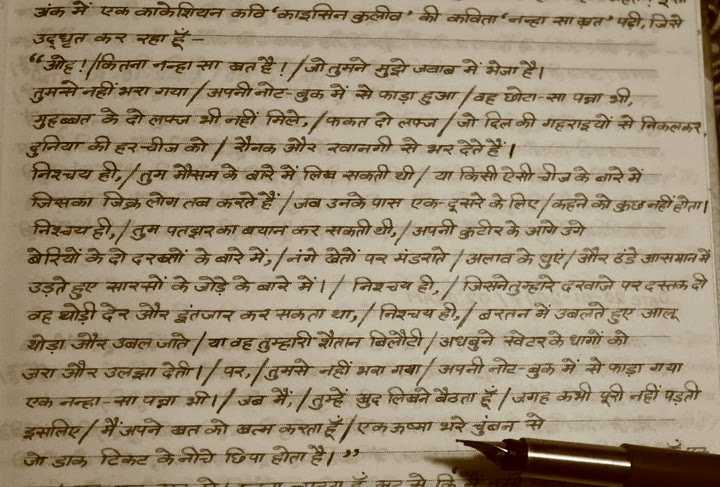 अंक में एक काकेशियन कवि 'काइसिन कुलीव' की कविता 'नन्हा सा ख़त' पढ़ी, जिसे
उद्धृत कर रहा हूँ —
"ओह! / कितना नन्हा सा खत है! / जो तुमने मुझे जवाब में भेजा है।
तुमसे नहीं भरा गया / अपनी नोट-बुक में से फाड़ा हुआ / वह छोटा-सा पन्ना भी,
मुहब्बत के दो लफ्ज भी नहीं मिले, / फकत दो लफ्ज / जो दिल की गहराइयों से निकलकर,
दुनिया की हर चीज को / रौनक और रवानगी से भर देते हैं।
निश्चय ही, / तुम मौसम के बारे में लिख सकती थी / या किसी ऐसी चीज के बारे में
जिसका जिक्र लोग तब करते हैं / जब उनके पास एक-दूसरे के लिए / कहने को कुछ नहीं होता।
निश्चय ही, / तुम पतझर का बयान कर सकती थी, / अपनी कुटीर के आगे उगे
बेरियों के दो दरख्तों के बारे में, / नंगे खेतों पर मंडराते / अलाव के धुएं / और ठंडे आसमान में
उड़ते हुए सारसों के जोड़े के बारे में। / निश्चय ही, / जिसने तुम्हारे दरवाजे पर दस्तक दी
वह थोड़ी देर और इंतजार कर सकता था, / निश्चय ही, / बरतन में उबलते हुए आलू
थोड़ा और उबल जाते / या वह तुम्हारी शैतान बिलौटी / अधबुने स्वेटर के धागों को
जरा और उलझा देती। / पर, / तुमसे नहीं भरा गया / अपनी नोट-बुक में से फाड़ा गया
एक नन्हा-सा पन्ना भी। / जब मैं, / तुम्हें खुद लिखने बैठता हूँ / जगह कभी पूरी नहीं पड़ती
इसलिए / मैं अपने खत को खत्म करता हूँ / एक ऊष्मा भरे चुंबन से
जो डाक टिकट के नीचे छिपा होता है।"